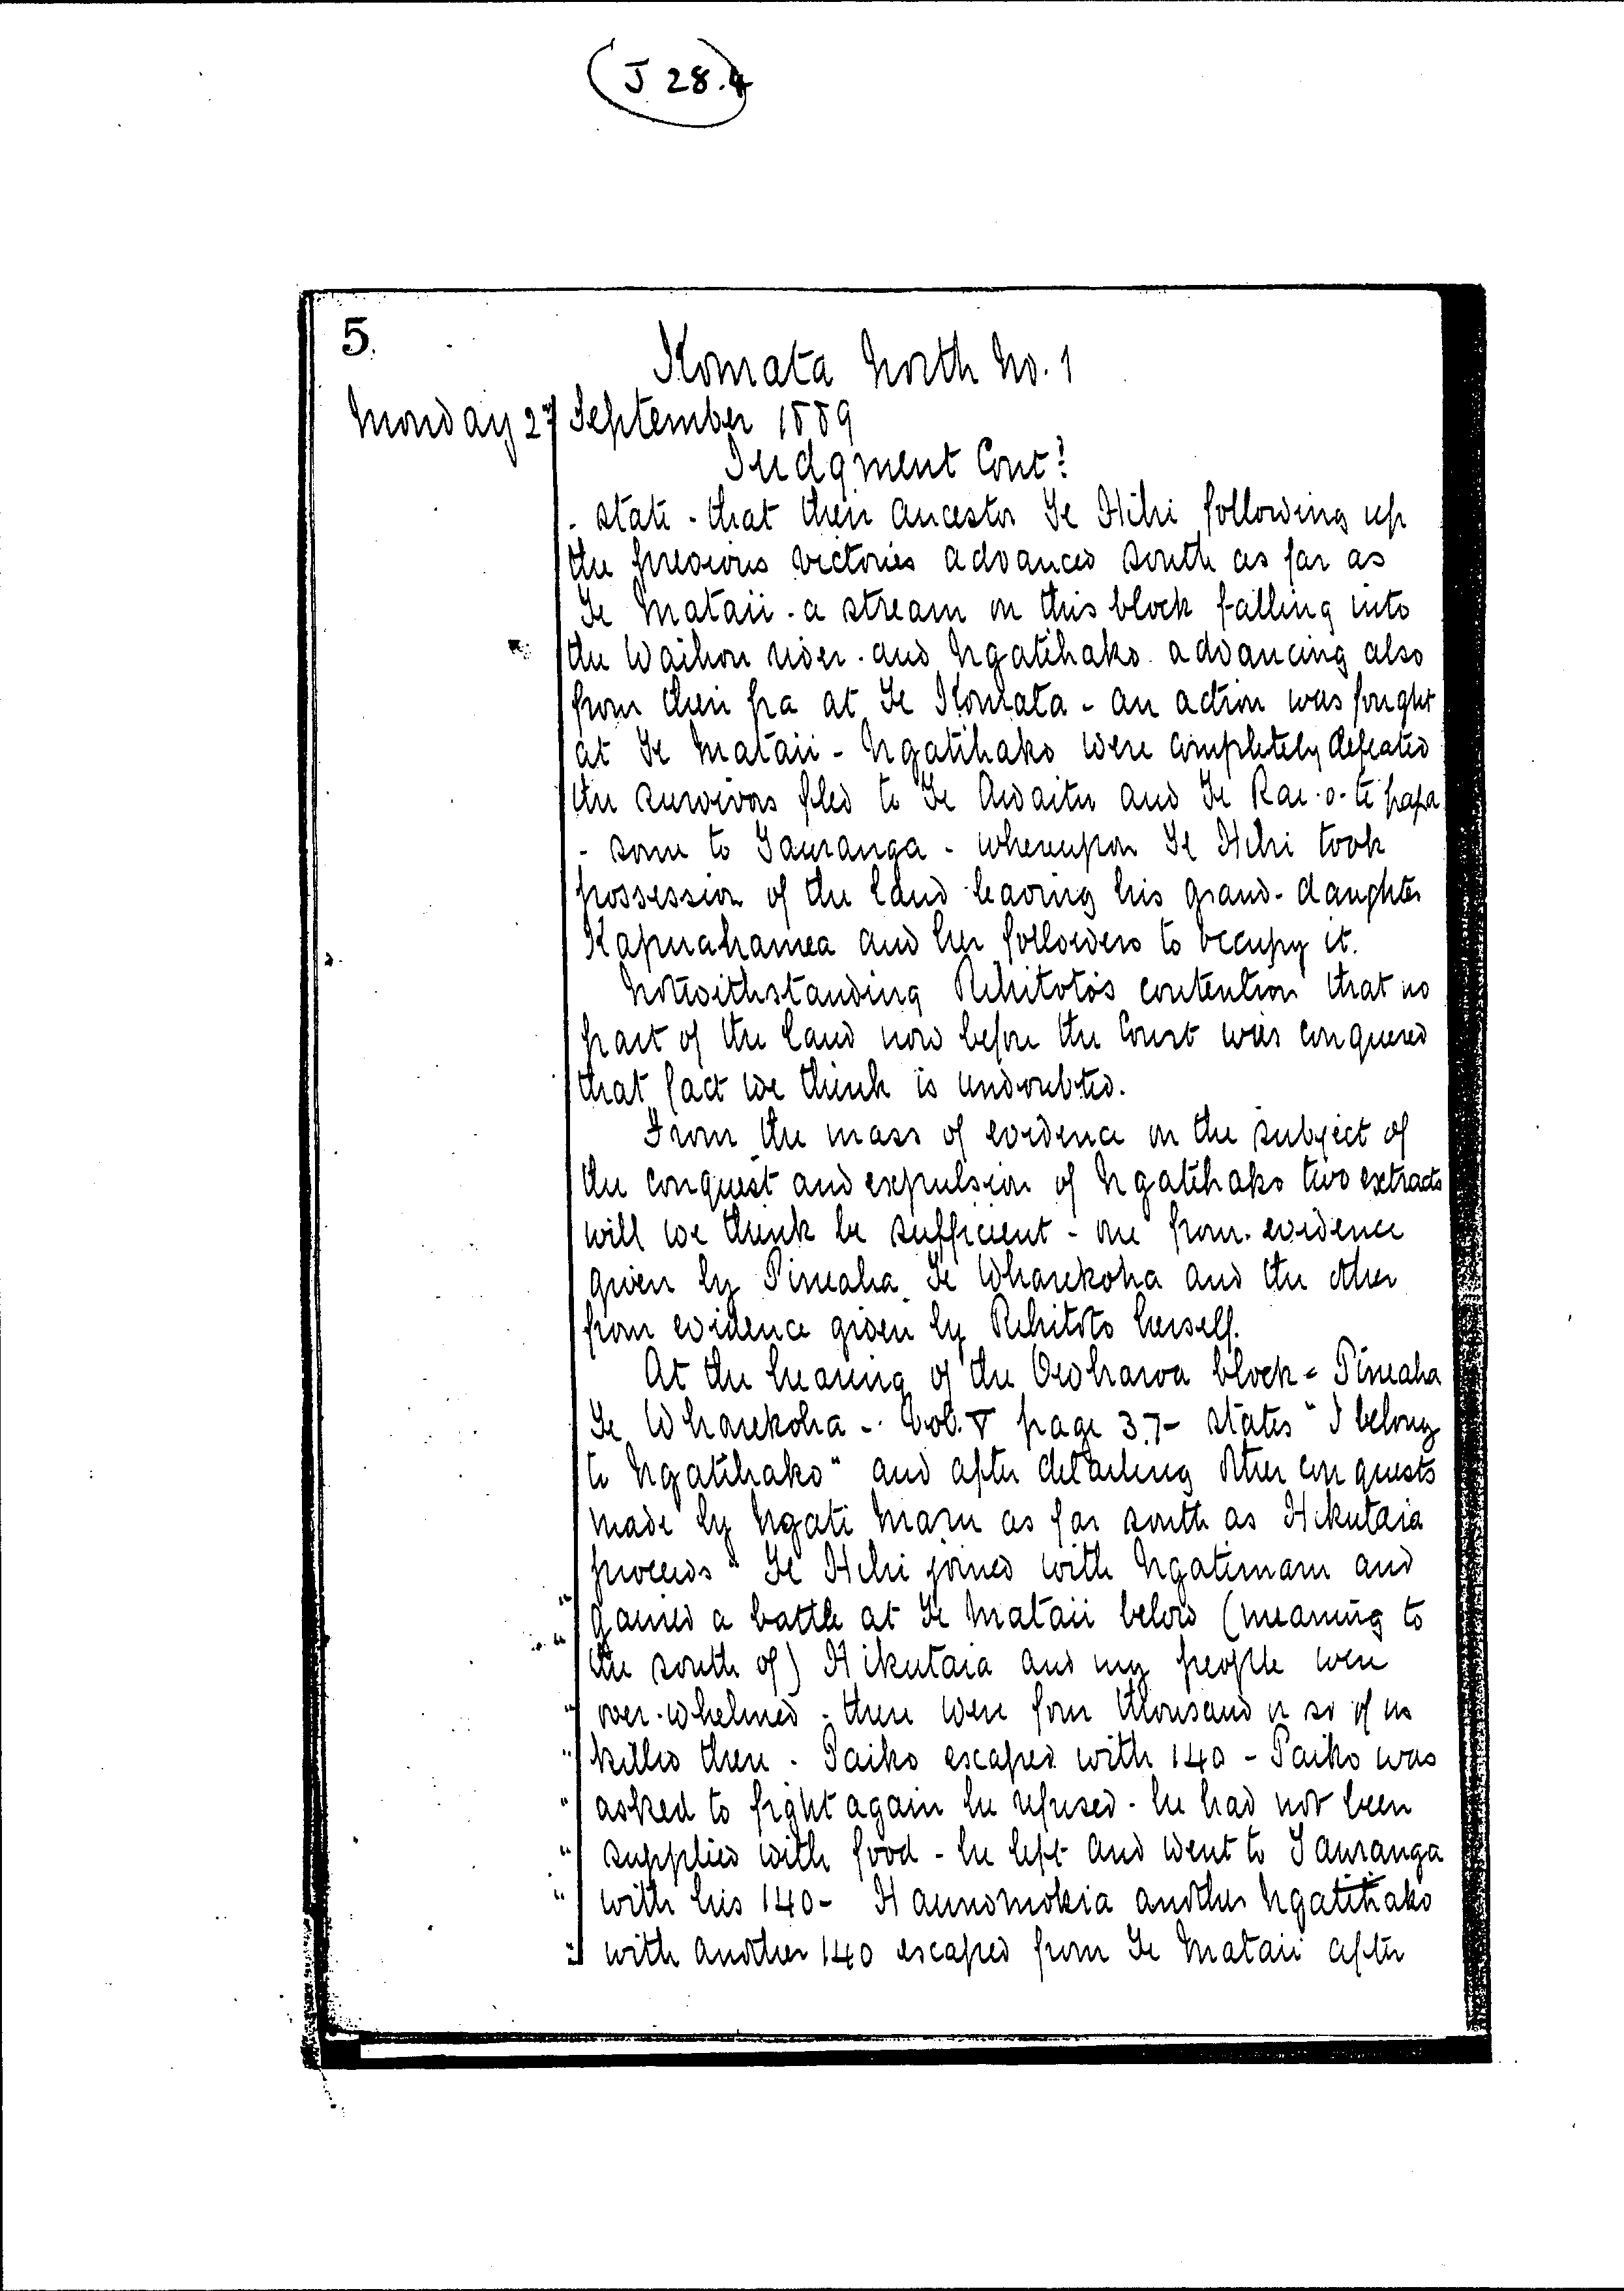 J 28.4
5.
Komata North No. 1
Monday 27 September 1889
Judgment Cont?
- state - that their ancestor Te Hihi following up
the previous victories advanced south as far as
Te Mataii - a stream on this block falling into
the Waihou river - and Ngatihako advancing also
from their pa at Te Komata - an action was fought
at Te Mataii - Ngatihako were completely defeated
the survivors fled to Te Awaitu and Te Rae-o-te papa
- some to Tauranga - whereupon Te Hihi took
possession of the land leaving his grand-daughter
Kapuahamea and her followers to occupy it.
Notwithstanding Rihitoto's contention that no
part of the land now before the Court was conquered
that fact we think is undoubted.
From the mass of evidence on the subject of
the conquest and expulsion of Ngatihako two extracts
will we think be sufficient - one from evidence
given by Pineaha Te Wharekoha and the other
from evidence given by Rihitoto herself.
At the hearing of the Owharoa block - Pineaha
Te Wharekoha - Vol. V page 37 - states "I belong
to Ngatihako" and after detailing other conquests
made by Ngati Maru as far south as Hikutaia
proceeds "Te Hihi joined with Ngatimaru and
" gained a battle at Te Mataii below (meaning to
" the south of) Hikutaia and my people were
" over-whelmed - there were four thousand or so of us
" killed there - Paiko escaped with 140 - Paiko was
" asked to fight again he refused - he had not been
" supplied with food - he left and went to Tauranga
" with his 140 - Haunomokia another Ngatihako
" with another 140 escaped from Te Mataii after